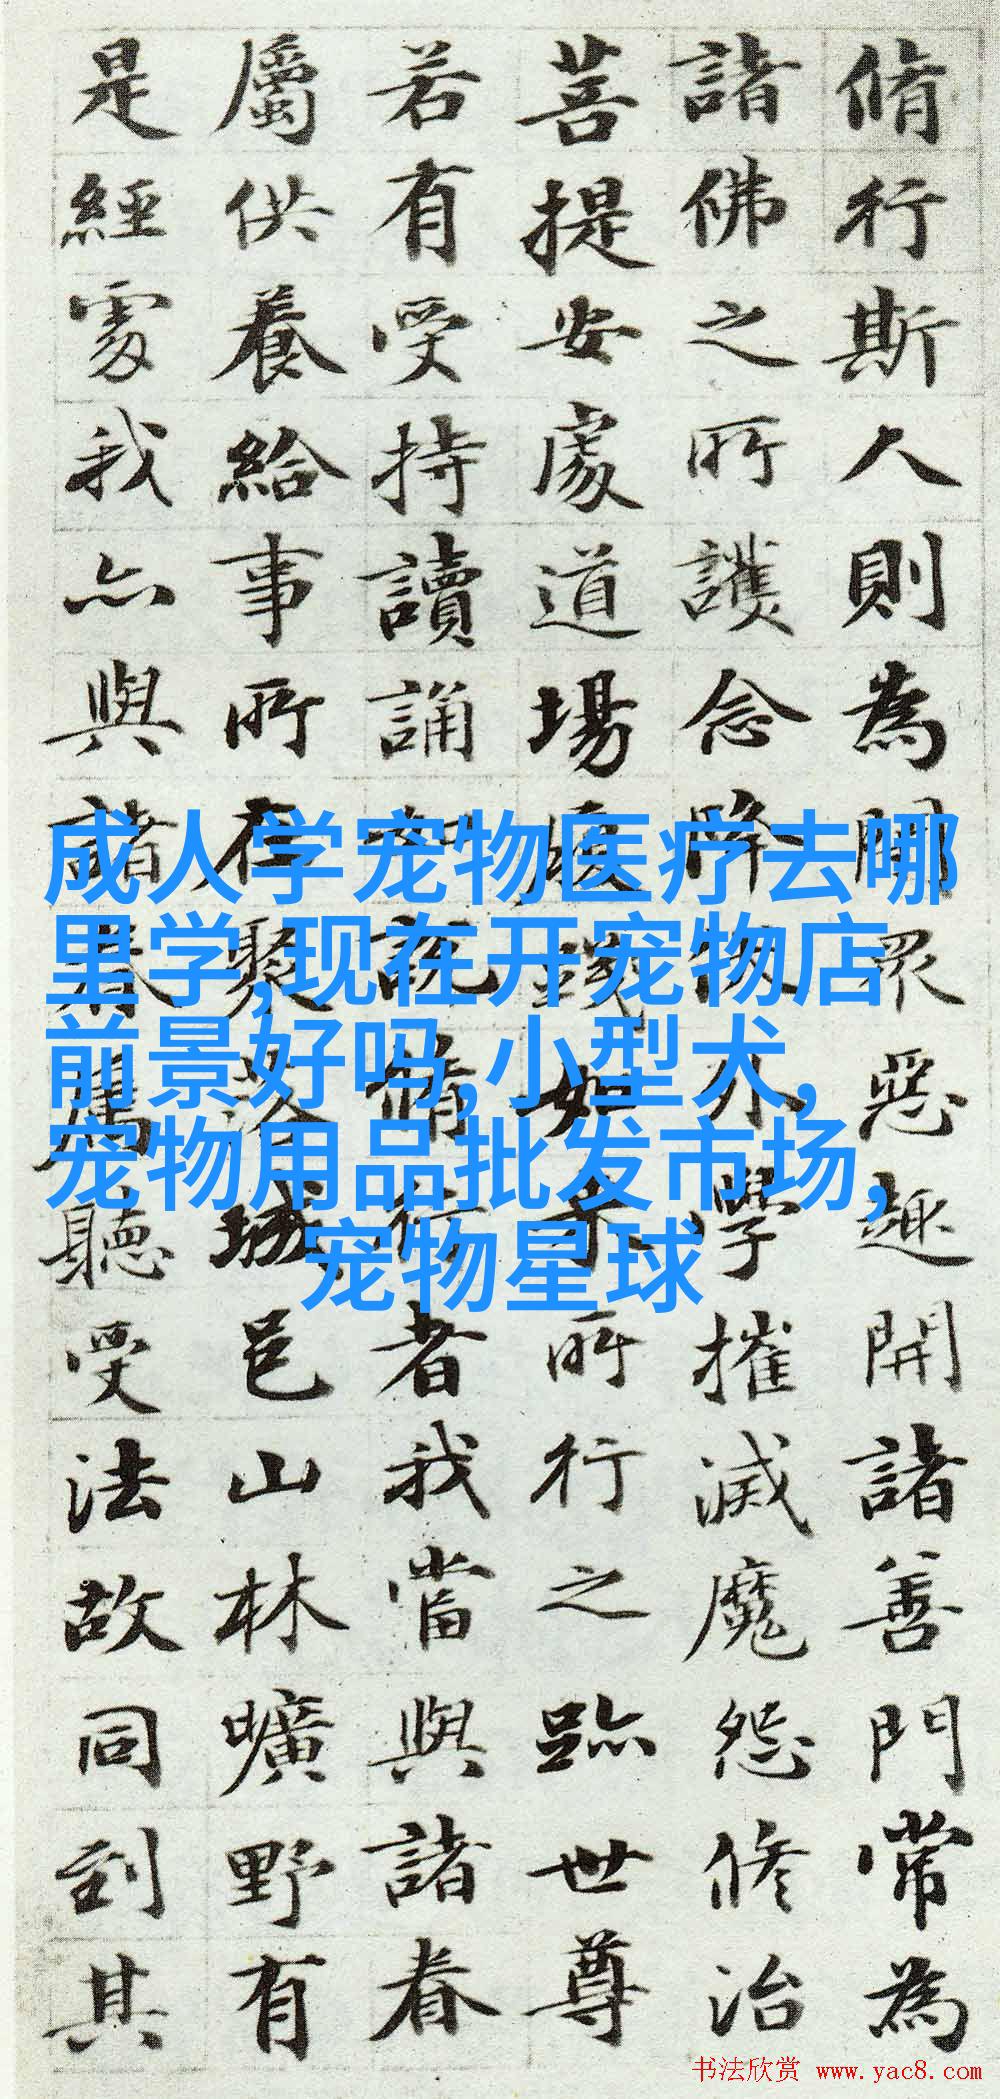 脩行斯人則為閉眾惡趣開諸善門常為
諸佛之所護念降伏外學摧滅魔怨修治
菩提安處道場履踐如來所行之跡世尊
若有受持讀誦解說脩行者我當與諸眷
屬供養給事所在聚落城邑山林曠野有
是經處我亦與諸眷屬聽受法故同到其
成人学宠物医疗去哪
里学,现在开宠物店
前景好吗,小型犬,
宠物用品批发市场,
宠物星球
书法欣赏 www.yac8.com